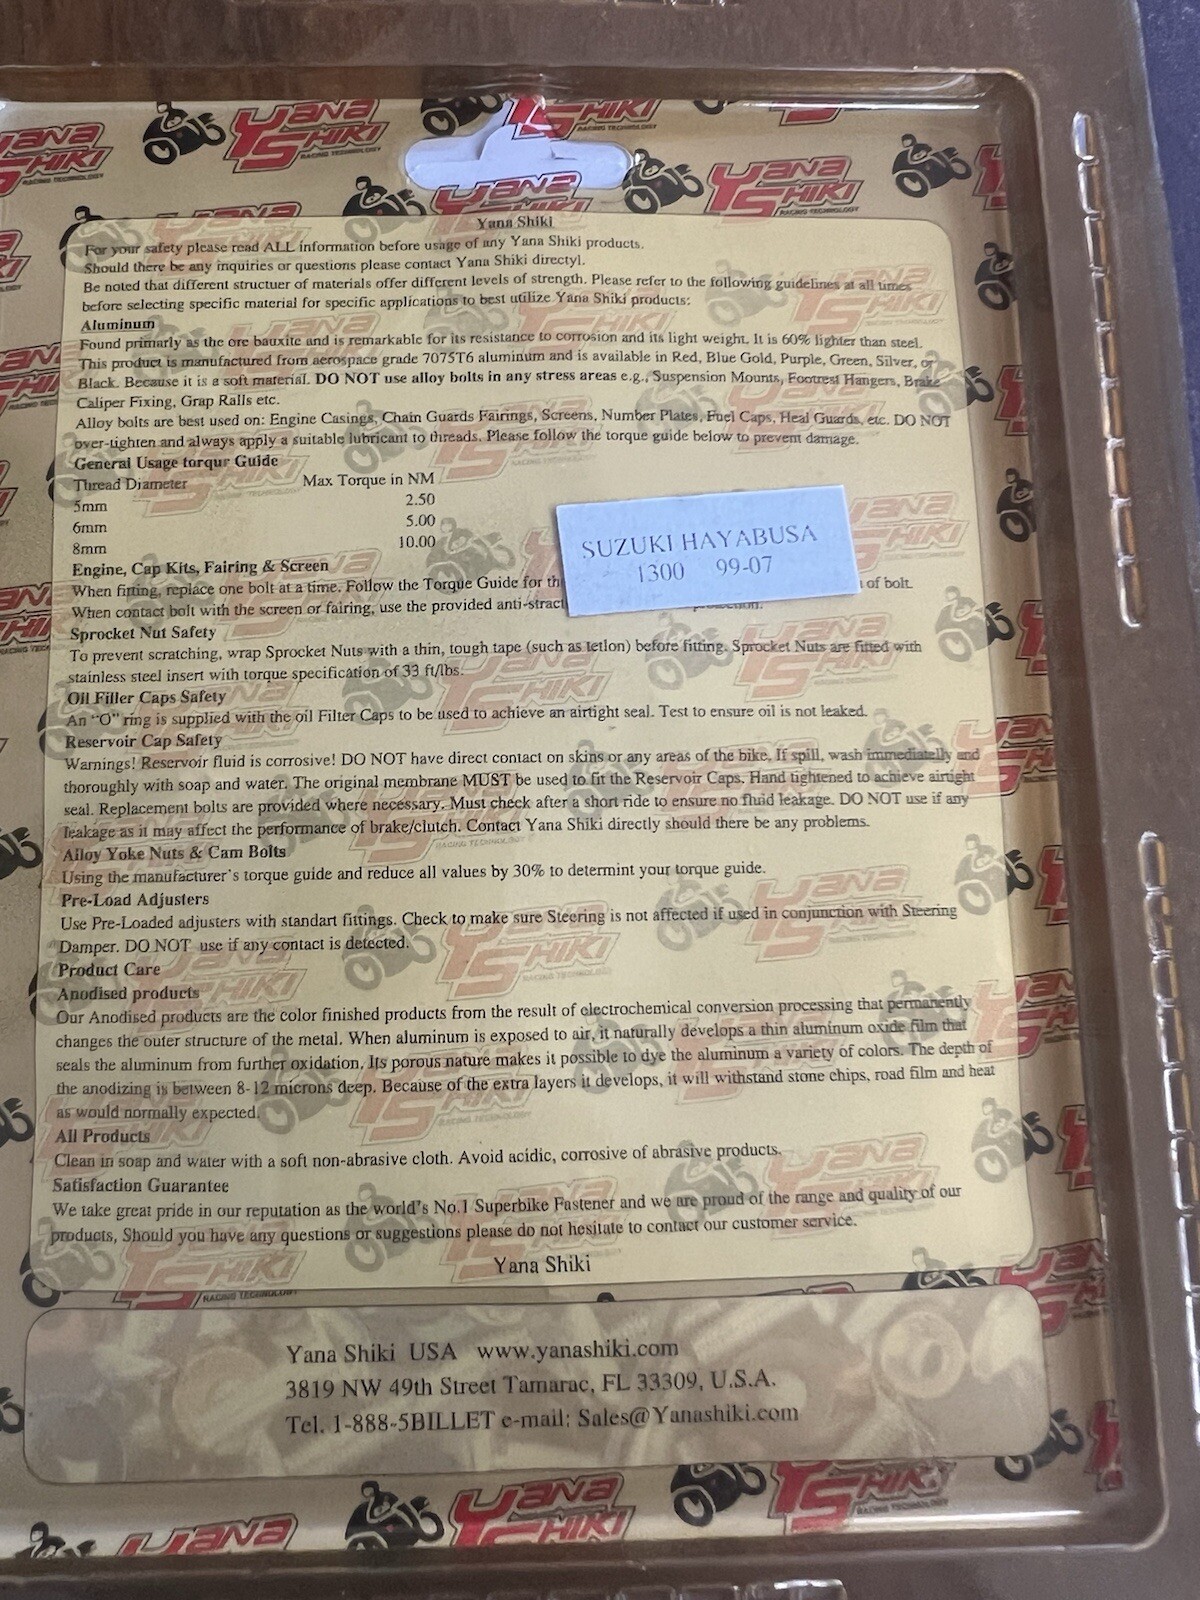 YANA SHIKI
RACING TECHNOLOGY
Yana Shiki
For your safety please read ALL information before usage of any Yana Shiki products.
Should there be any inquiries or questions please contact Yana Shiki directyl.
Be noted that different structuer of materials offer different levels of strength. Please refer to the following guidelines at all times
before selecting specific material for specific applications to best utilize Yana Shiki products:
Aluminum
Found primarly as the ore bauxite and is remarkable for its resistance to corrosion and its light weight. It is 60% lighter than steel.
This product is manufactured from aerospace grade 7075T6 aluminum and is available in Red, Blue Gold, Purple, Green, Silver, or
Black. Because it is a soft material. DO NOT use alloy bolts in any stress areas e.g., Suspension Mounts, Footrest Hangers, Brake
Caliper Fixing, Grap Ralls etc.
Alloy bolts are best used on: Engine Casings, Chain Guards Fairings, Screens, Number Plates, Fuel Caps, Heal Guards, etc. DO NOT
over-tighten and always apply a suitable lubricant to threads. Please follow the torque guide below to prevent damage.
General Usage torqur Guide
Thread Diameter Max Torque in NM
5mm 2.50
6mm 5.00
8mm 10.00
SUZUKI HAYABUSA
1300 99-07
Engine, Cap Kits, Fairing & Screen
When fitting, replace one bolt at a time. Follow the Torque Guide for th of bolt.
When contact bolt with the screen or fairing, use the provided anti-stract
Sprocket Nut Safety
To prevent scratching, wrap Sprocket Nuts with a thin, tough tape (such as tetlon) before fitting. Sprocket Nuts are fitted with
stainless steel insert with torque specification of 33 ft/lbs.
Oil Filler Caps Safety
An "O" ring is supplied with the oil Filter Caps to be used to achieve an airtight seal. Test to ensure oil is not leaked.
Reservoir Cap Safety
Warnings! Reservoir fluid is corrosive! DO NOT have direct contact on skins or any areas of the bike. If spill, wash immediatelly and
thoroughly with soap and water. The original membrane MUST be used to fit the Reservoir Caps. Hand tightened to achieve airtight
seal. Replacement bolts are provided where necessary. Must check after a short ride to ensure no fluid leakage. DO NOT use if any
leakage as it may affect the performance of brake/clutch. Contact Yana Shiki directly should there be any problems.
Alloy Yoke Nuts & Cam Bolts
Using the manufacturer's torque guide and reduce all values by 30% to determint your torque guide.
Pre-Load Adjusters
Use Pre-Loaded adjusters with standart fittings. Check to make sure Steering is not affected if used in conjunction with Steering
Damper. DO NOT use if any contact is detected.
Product Care
Anodised products
Our Anodised products are the color finished products from the result of electrochemical conversion processing that permanently
changes the outer structure of the metal. When aluminum is exposed to air, it naturally develops a thin aluminum oxide film that
seals the aluminum from further oxidation, Its porous nature makes it possible to dye the aluminum a variety of colors. The depth of
the anodizing is between 8-12 microns deep. Because of the extra layers it develops, it will withstand stone chips, road film and heat
as would normally expected.
All Products
Clean in soap and water with a soft non-abrasive cloth. Avoid acidic, corrosive of abrasive products.
Satisfaction Guarantee
We take great pride in our reputation as the world's No.1 Superbike Fastener and we are proud of the range and quality of our
products, Should you have any questions or suggestions please do not hesitate to contact our customer service.
Yana Shiki
Yana Shiki USA www.yanashiki.com
3819 NW 49th Street Tamarac, FL 33309, U.S.A.
Tel. 1-888-5BILLET e-mail: Sales@Yanashiki.com